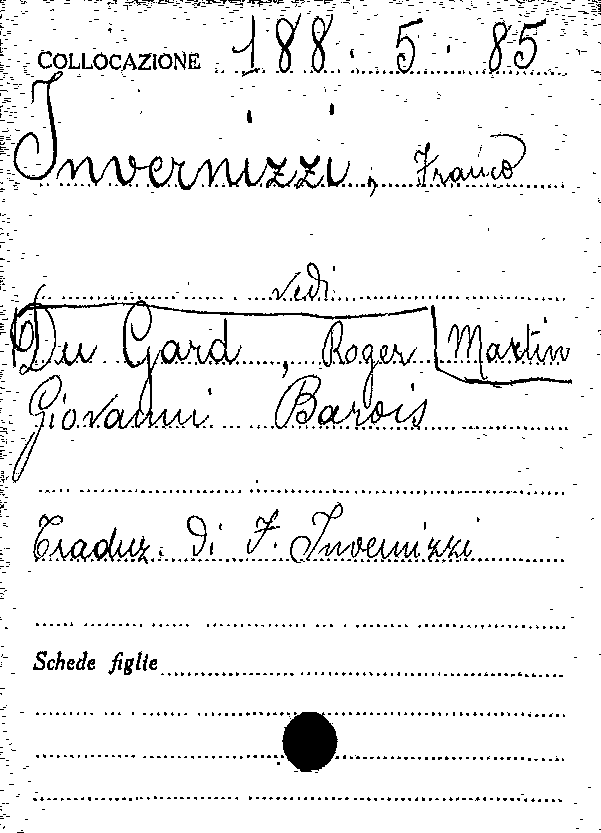 COLLOCAZIONE 188. 5. 85
Invernizzi, Franco
vedi
Du Gard, Roger Martin
Giovanni Barois
Traduz. di F. Invernizzi
Schede figlie